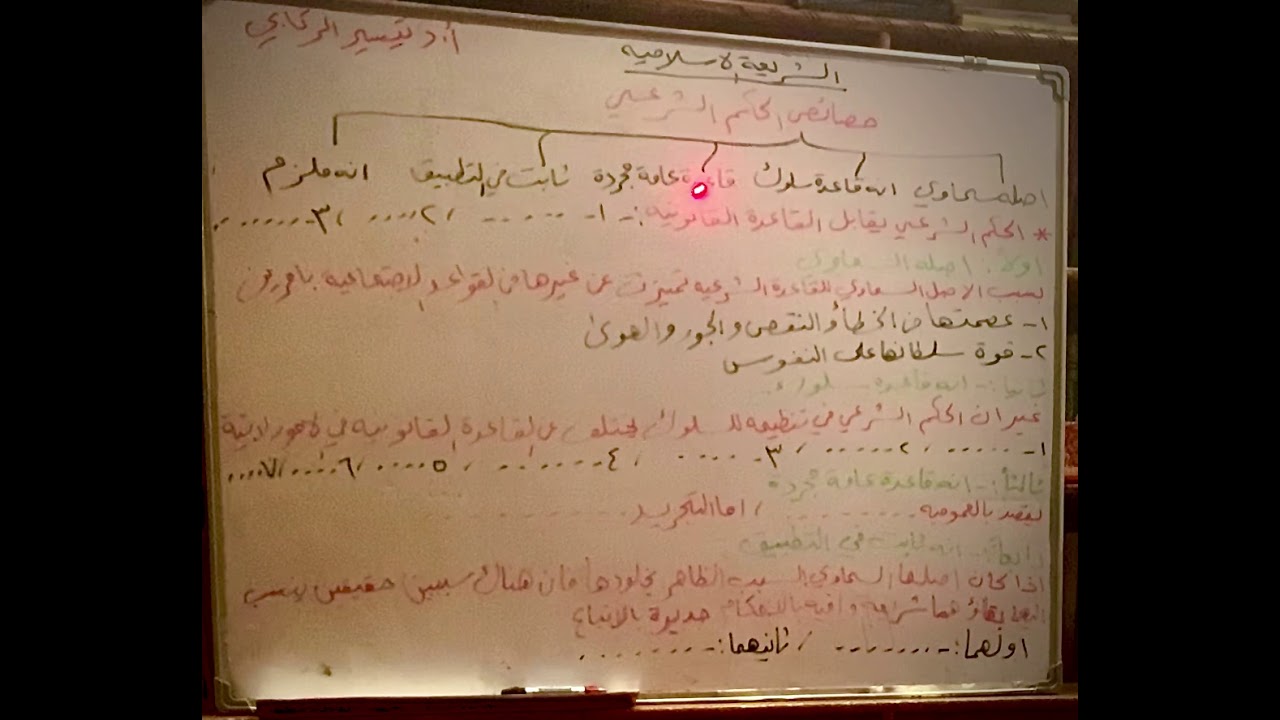 أ.د تيسير الركابي
الشريعة الاسلاميه
خصائص الحكم الشرعي
اصله سماوي انه قاعدة سلوك قاعدة عامة مجردة ثابت في التطبيق انه ملزم
* الحكم الشرعي يقابل القاعدة القانونيه :- ١- ....... ، ٢ .... ، ٣- .......
اولاً: اصله السماوي
بسبب الاصل السماوي للقاعدة الشرعيه تميزت عن غيرها من القواعد الاجتماعية بامرين
١- عصمتها من الخطأ والنقص والجور والهوى
٢- قوة سلطانها على النفوس
ثانيا :- انه قاعدة سلوك
غير ان الحكم الشرعي في تنظيمه للسلوك يختلف عن القاعدة القانونيه في الامور الاتية
١- ...... ، ٢ ...... ، ٣- ..... ، ٤- ....... ، ٥ ..... ، ٦ ..... ، ٧ ....
ثالثاً :- انه قاعدة عامة مجردة
يقصد بالعموميه ........ ، اما التجريد ........
رابعاً :- انه ثابت في التطبيق
اذا كان اصلها السماوي السبب الظاهر بخلودها فان هناك سببين حقيقين لا ينسب
بقاؤهما شريعة وافيه بالاحكام جديرة بالاتباع
اولهما :- ........ ، ثانيهما :- ........